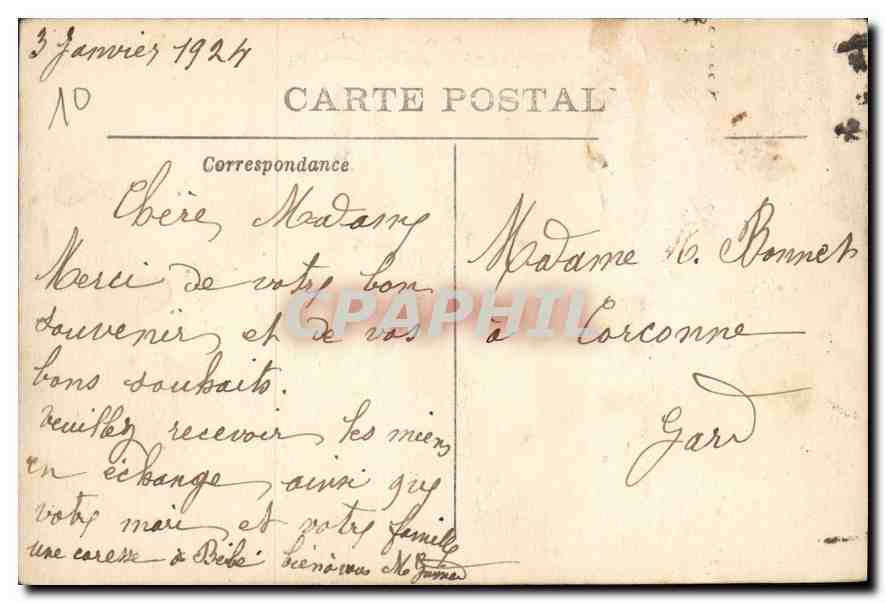 3 Janvier 1924
10
CARTE POSTAL
Correspondance
Chère Madame
Merci de votre bon
souvenir et de vos
bons souhaits.
Veuillez recevoir les miens
en échange, ainsi que
votre mari et votre famille
une caresse à Bébé bien à vous M
Madame H. Bonnet
à Corconne
Gard
CPAPHIL